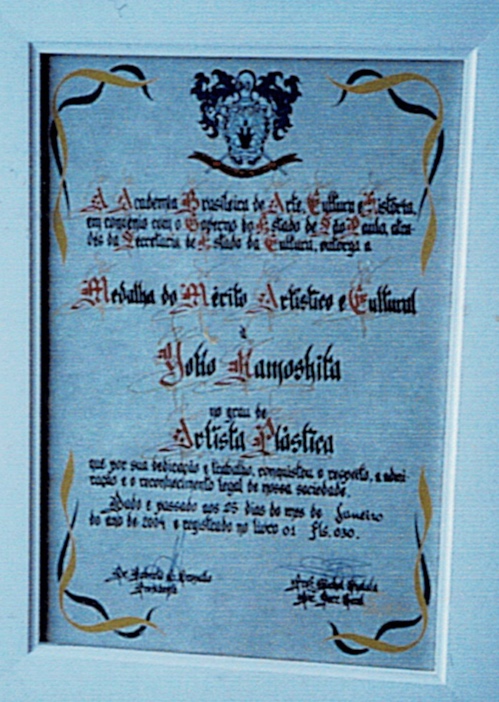 A Academia Brasileira de Arte, Cultura e História,
em convênio com o Governo do Estado de São Paulo, atra-
vés da Secretaria de Estado da Cultura, outorga a
Medalha do Mérito Artístico e Cultural
à
Yoko Kamoshita
no grau de
Artista Plástica
que por sua dedicação e trabalho, conquistou o respeito, a admi-
ração e o reconhecimento legal de nossa sociedade.
Dado e passado aos 25 dias do mes de Janeiro
do ano de 2004 e registrado no livro 01 fls. 030.
Presidente